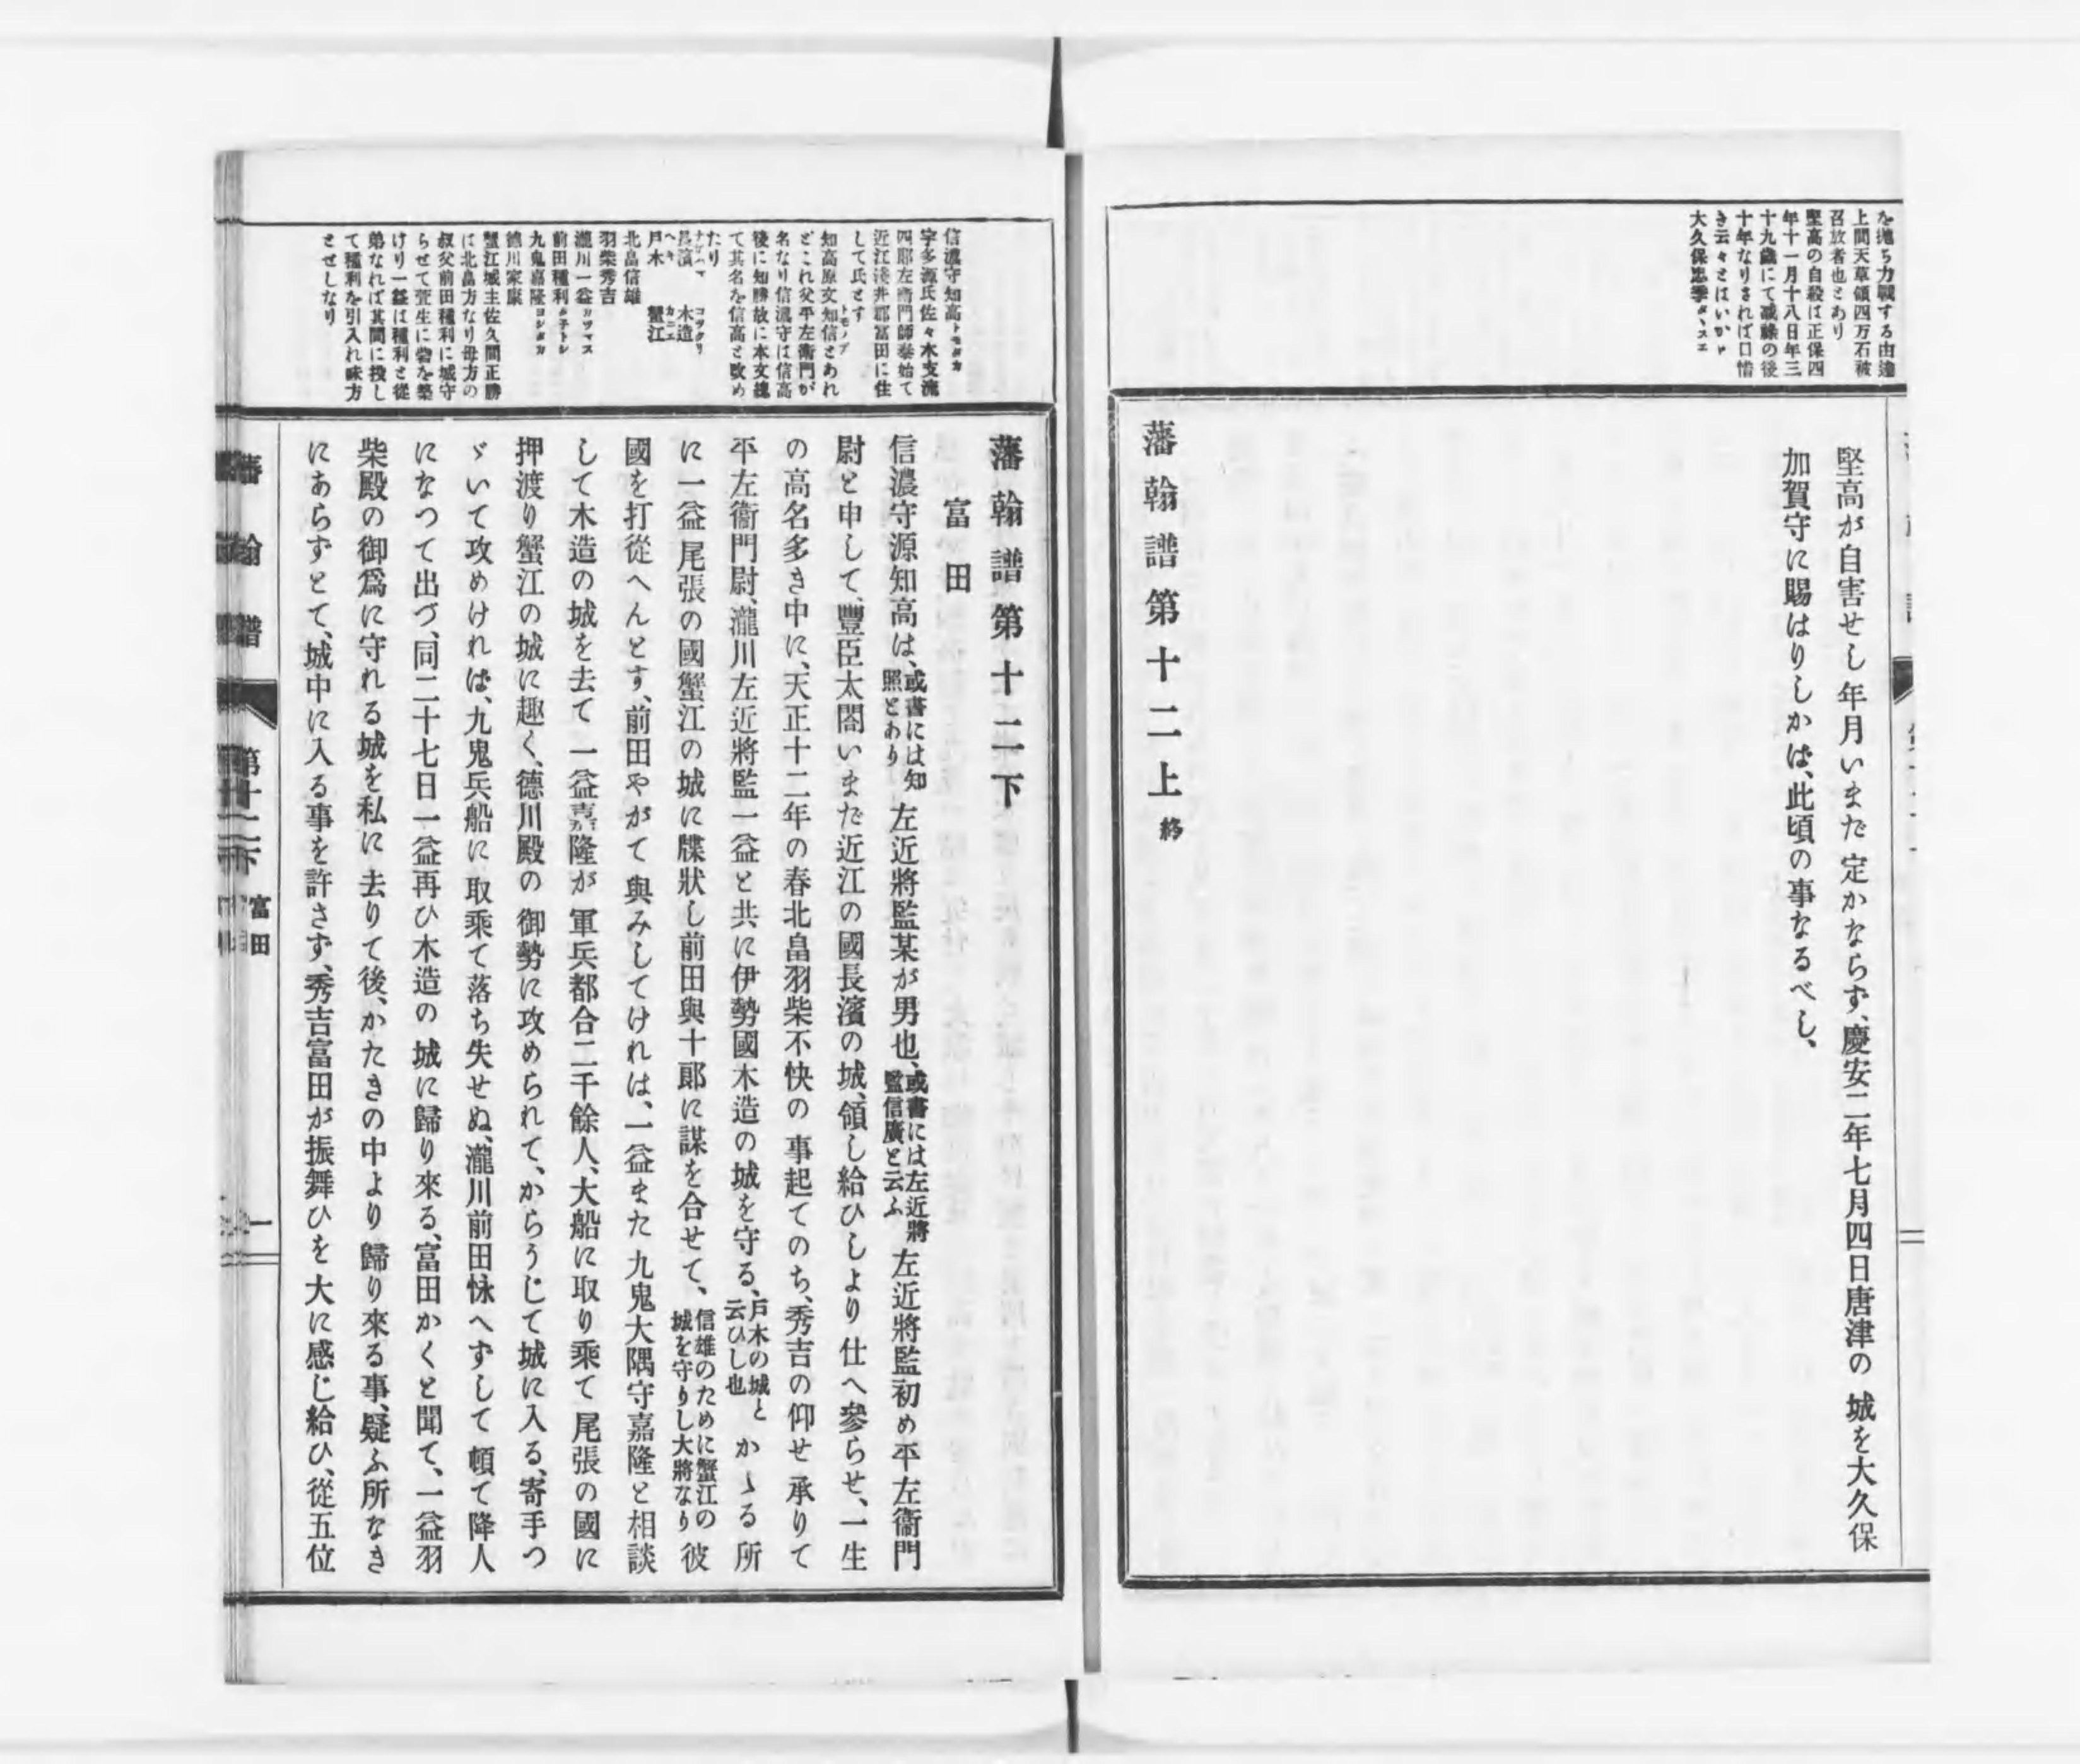 を抛ち力戰する由達
上聞天草領四万石被
召放者也とあり
堅高の自殺は正保四
年十一月十八日年三
十九歳にて減祿の後
十年なりされば口惜
き云々とはいかゞ
大久保忠季タヾスエ
堅高が自害せし年月いまだ定かならず、慶安二年七月四日唐津の城を大久保
加賀守に賜はりしかば、此頃の事なるべし、
藩翰譜第十二上終
信濃守知高トモタカ
宇多源氏佐々木支流
四郎左衞門師泰始て
近江淺井郡富田に住
して氏とす
知高原文知信トモノブとあれ
どこれ父平左衞門が
名なり信濃守は信高
後に知勝故に本文總
て其名を信高と改め
たり
長濱ナガハマ 木造コヅクリ
戸木ヘキ 蟹江カニエ
北畠信雄
羽柴秀吉
瀧川一益カヅマス
前田種利タ子トシ
九鬼嘉隆ヨシタカ
德川家康
蟹江城主佐久間正勝
は北畠方なり母方の
叔父前田種利に城守
らせて萱生に砦を築
けり一益は種利と從
弟なれば其間に投し
て種利を引入れ味方
とせしなり
藩翰譜第十二下
富田
信濃守源知高は、或書には知照とあり左近將監某が男也、或書には左近將監信廣と云ふ左近將監初め平左衞門
尉と申して、豐臣太閤いまだ近江の國長濱の城、領し給ひしより仕へ參らせ、一生
の高名多き中に、天正十二年の春北畠羽柴不快の事起てのち、秀吉の仰せ承りて
平左衞門尉、瀧川左近將監一益と共に伊勢國木造の城を守る、戸木の城と云ひし也かゝる所
に一益尾張の國蟹江の城に牒狀し前田與十郎に謀を合せて、信雄のために蟹江の城を守りし大將なり彼
國を打從へんとす、前田やがて與みしてけれは、一益また九鬼大隅守嘉隆と相談
して木造の城を去て一益嘉隆が軍兵都合二千餘人、大船に取り乘て尾張の國に
押渡り蟹江の城に趣く、德川殿の御勢に攻められて、からうじて城に入る、寄手つ
ゞいて攻めければ、九鬼兵船に取乘て落ち失せぬ、瀧川前田怺へずして頓て降人
になつて出づ、同二十七日一益再ひ木造の城に歸り來る、富田かくと聞て、一益羽
柴殿の御爲に守れる城を私に去りて後、かたきの中より歸り來る事、疑ふ所なき
にあらずとて、城中に入る事を許さず、秀吉富田が振舞ひを大に感じ給ひ、從五位
藩翰譜 第十二下 富田 一